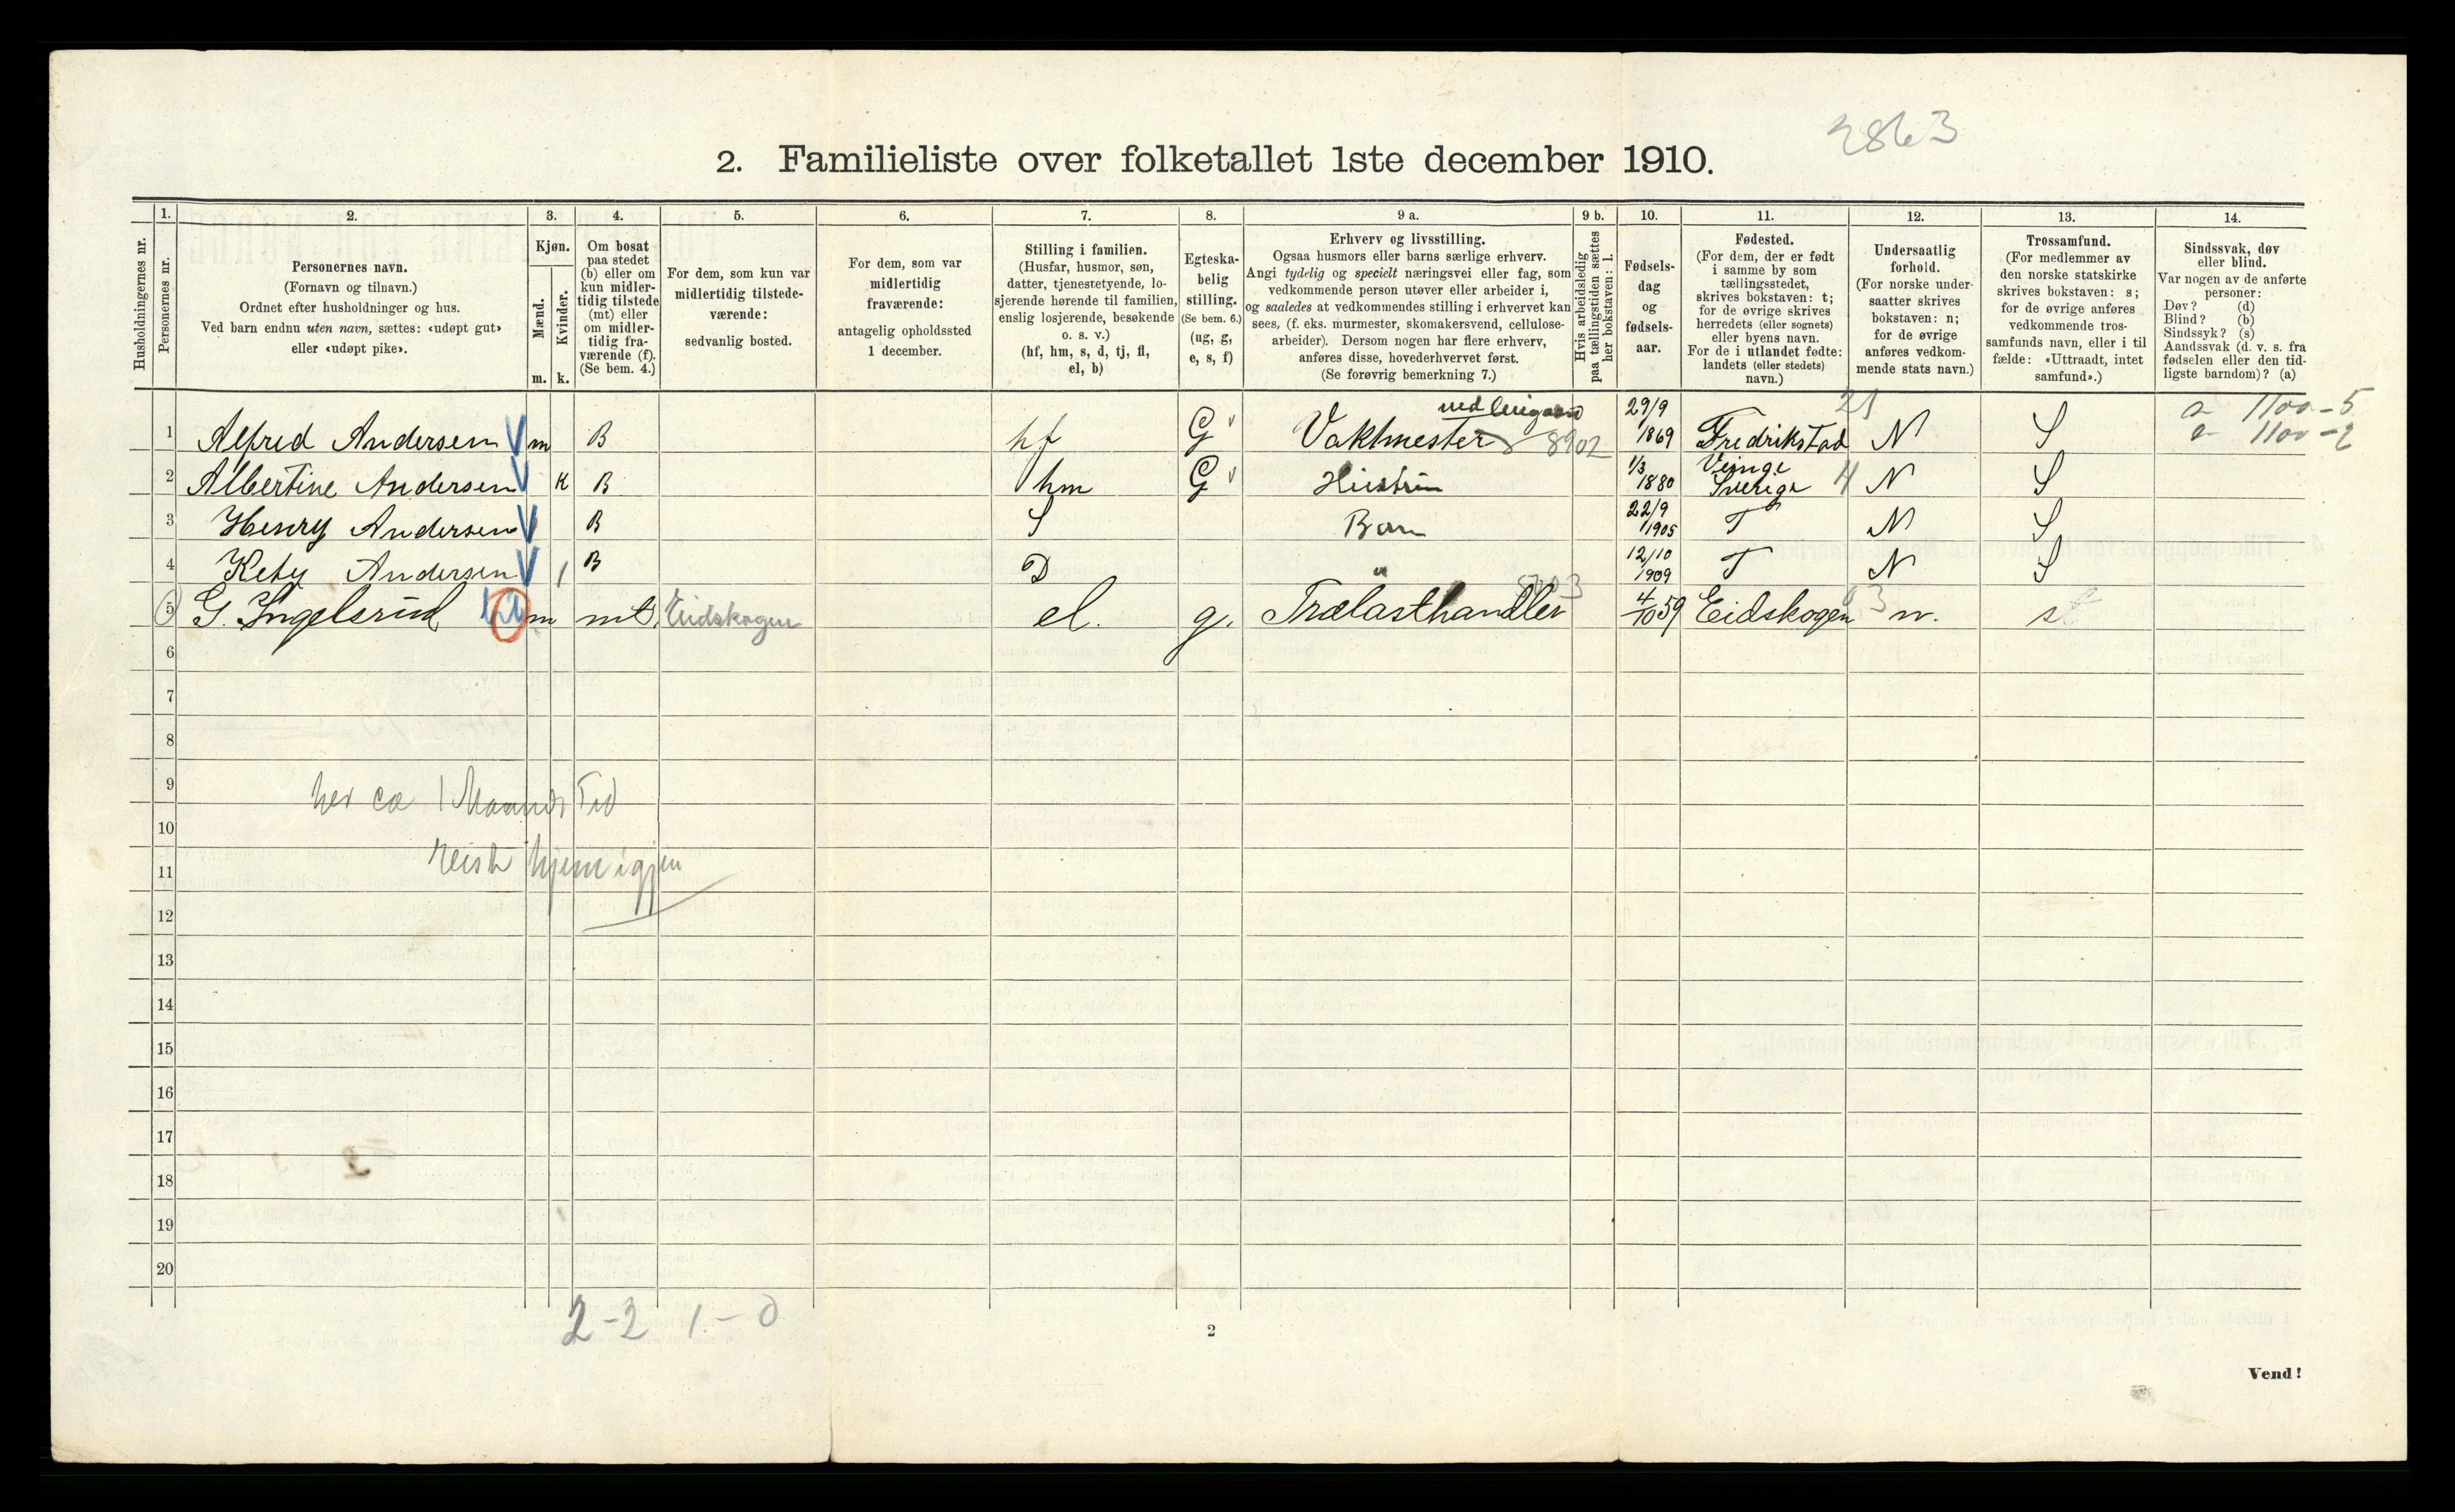 2863
2. Familieliste over folketallet 1ste december 1910.
Husholdningernes nr.
1. Personernes nr.
2. Personernes navn.
(Fornavn og tilnavn.)
Ordnet efter husholdninger og hus.
Ved barn endnu uten navn, sættes: «udøpt gut»
eller «udøpt pike».
3. Kjøn.
Mænd. Kvinder.
m. k.
4. Om bosat
paa stedet
(b) eller om
kun midler-
tidig tilstede
(mt) eller
om midler-
tidig fra-
værende (f).
(Se bem. 4.)
5. For dem, som kun var
midlertidig tilstede-
værende:
sedvanlig bosted.
6. For dem, som var
midlertidig
fraværende:
antagelig opholdssted
1 december.
7. Stilling i familien.
(Husfar, husmor, søn,
datter, tjenestetyende, lo-
sjerende hørende til familien,
enslig losjerende, besøkende
o. s. v.)
(hf, hm, s, d, tj, fl,
el, b)
8. Egteska-
belig
stilling.
(Se bem. 6.)
(ug, g,
e, s, f)
9 a. Erhverv og livsstilling.
Ogsaa husmors eller barns særlige erhverv.
Angi tydelig og specielt næringsvei eller fag, som
vedkommende person utøver eller arbeider i,
og saaledes at vedkommendes stilling i erhvervet kan
sees, (f. eks. murmester, skomakersvend, cellulose-
arbeider). Dersom nogen har flere erhverv,
anføres disse, hovederhvervet først.
(Se forøvrig bemerkning 7.)
9 b. Hvis arbeidsledig
paa tællingstiden sættes
her bokstaven: l.
10. Fødsels-
dag
og
fødsels-
aar.
11. Fødested.
(For dem, der er født
i samme by som
tællingsstedet,
skrives bokstaven: t;
for de øvrige skrives
herredets (eller sognets)
eller byens navn.
For de i utlandet fødte:
landets (eller stedets)
navn.)
12. Undersaatlig
forhold.
(For norske under-
saatter skrives
bokstaven: n;
for de øvrige
anføres vedkom-
mende stats navn.)
13. Trossamfund.
(For medlemmer av
den norske statskirke
skrives bokstaven: s;
for de øvrige anføres
vedkommende tros-
samfunds navn, eller i til
fælde: «Uttraadt, intet
samfund».)
14. Sindssvak, døv
eller blind.
Var nogen av de anførte
personer:
Døv? (d)
Blind? (b)
Sindssyk? (s)
Aandssvak (d. v. s. fra
fødselen eller den tid-
ligste barndom)? (a)
1 Alfred Andersen m B hf G Vaktmester 8902 29/9 1869 Fredrikstad N S
2 Albertine Andersen K B hm G Hustru 1/3 1880 Veinge Sverige N S
3 Henry Andersen B S Barn 22/9 1905 T N S
4 Kety Andersen B D 12/10 1909 T N S
5 G. Ingelsrud m mt. Eidskogen el. g. Trælasthandler 4/10 59 Eidskogen n. s
6
7
8
9
her ca 1 Maands Tid
10
11
reist hjem igjen
12
13
14
15
16
17
18
19
20
2-2 1-0
2
Vend!